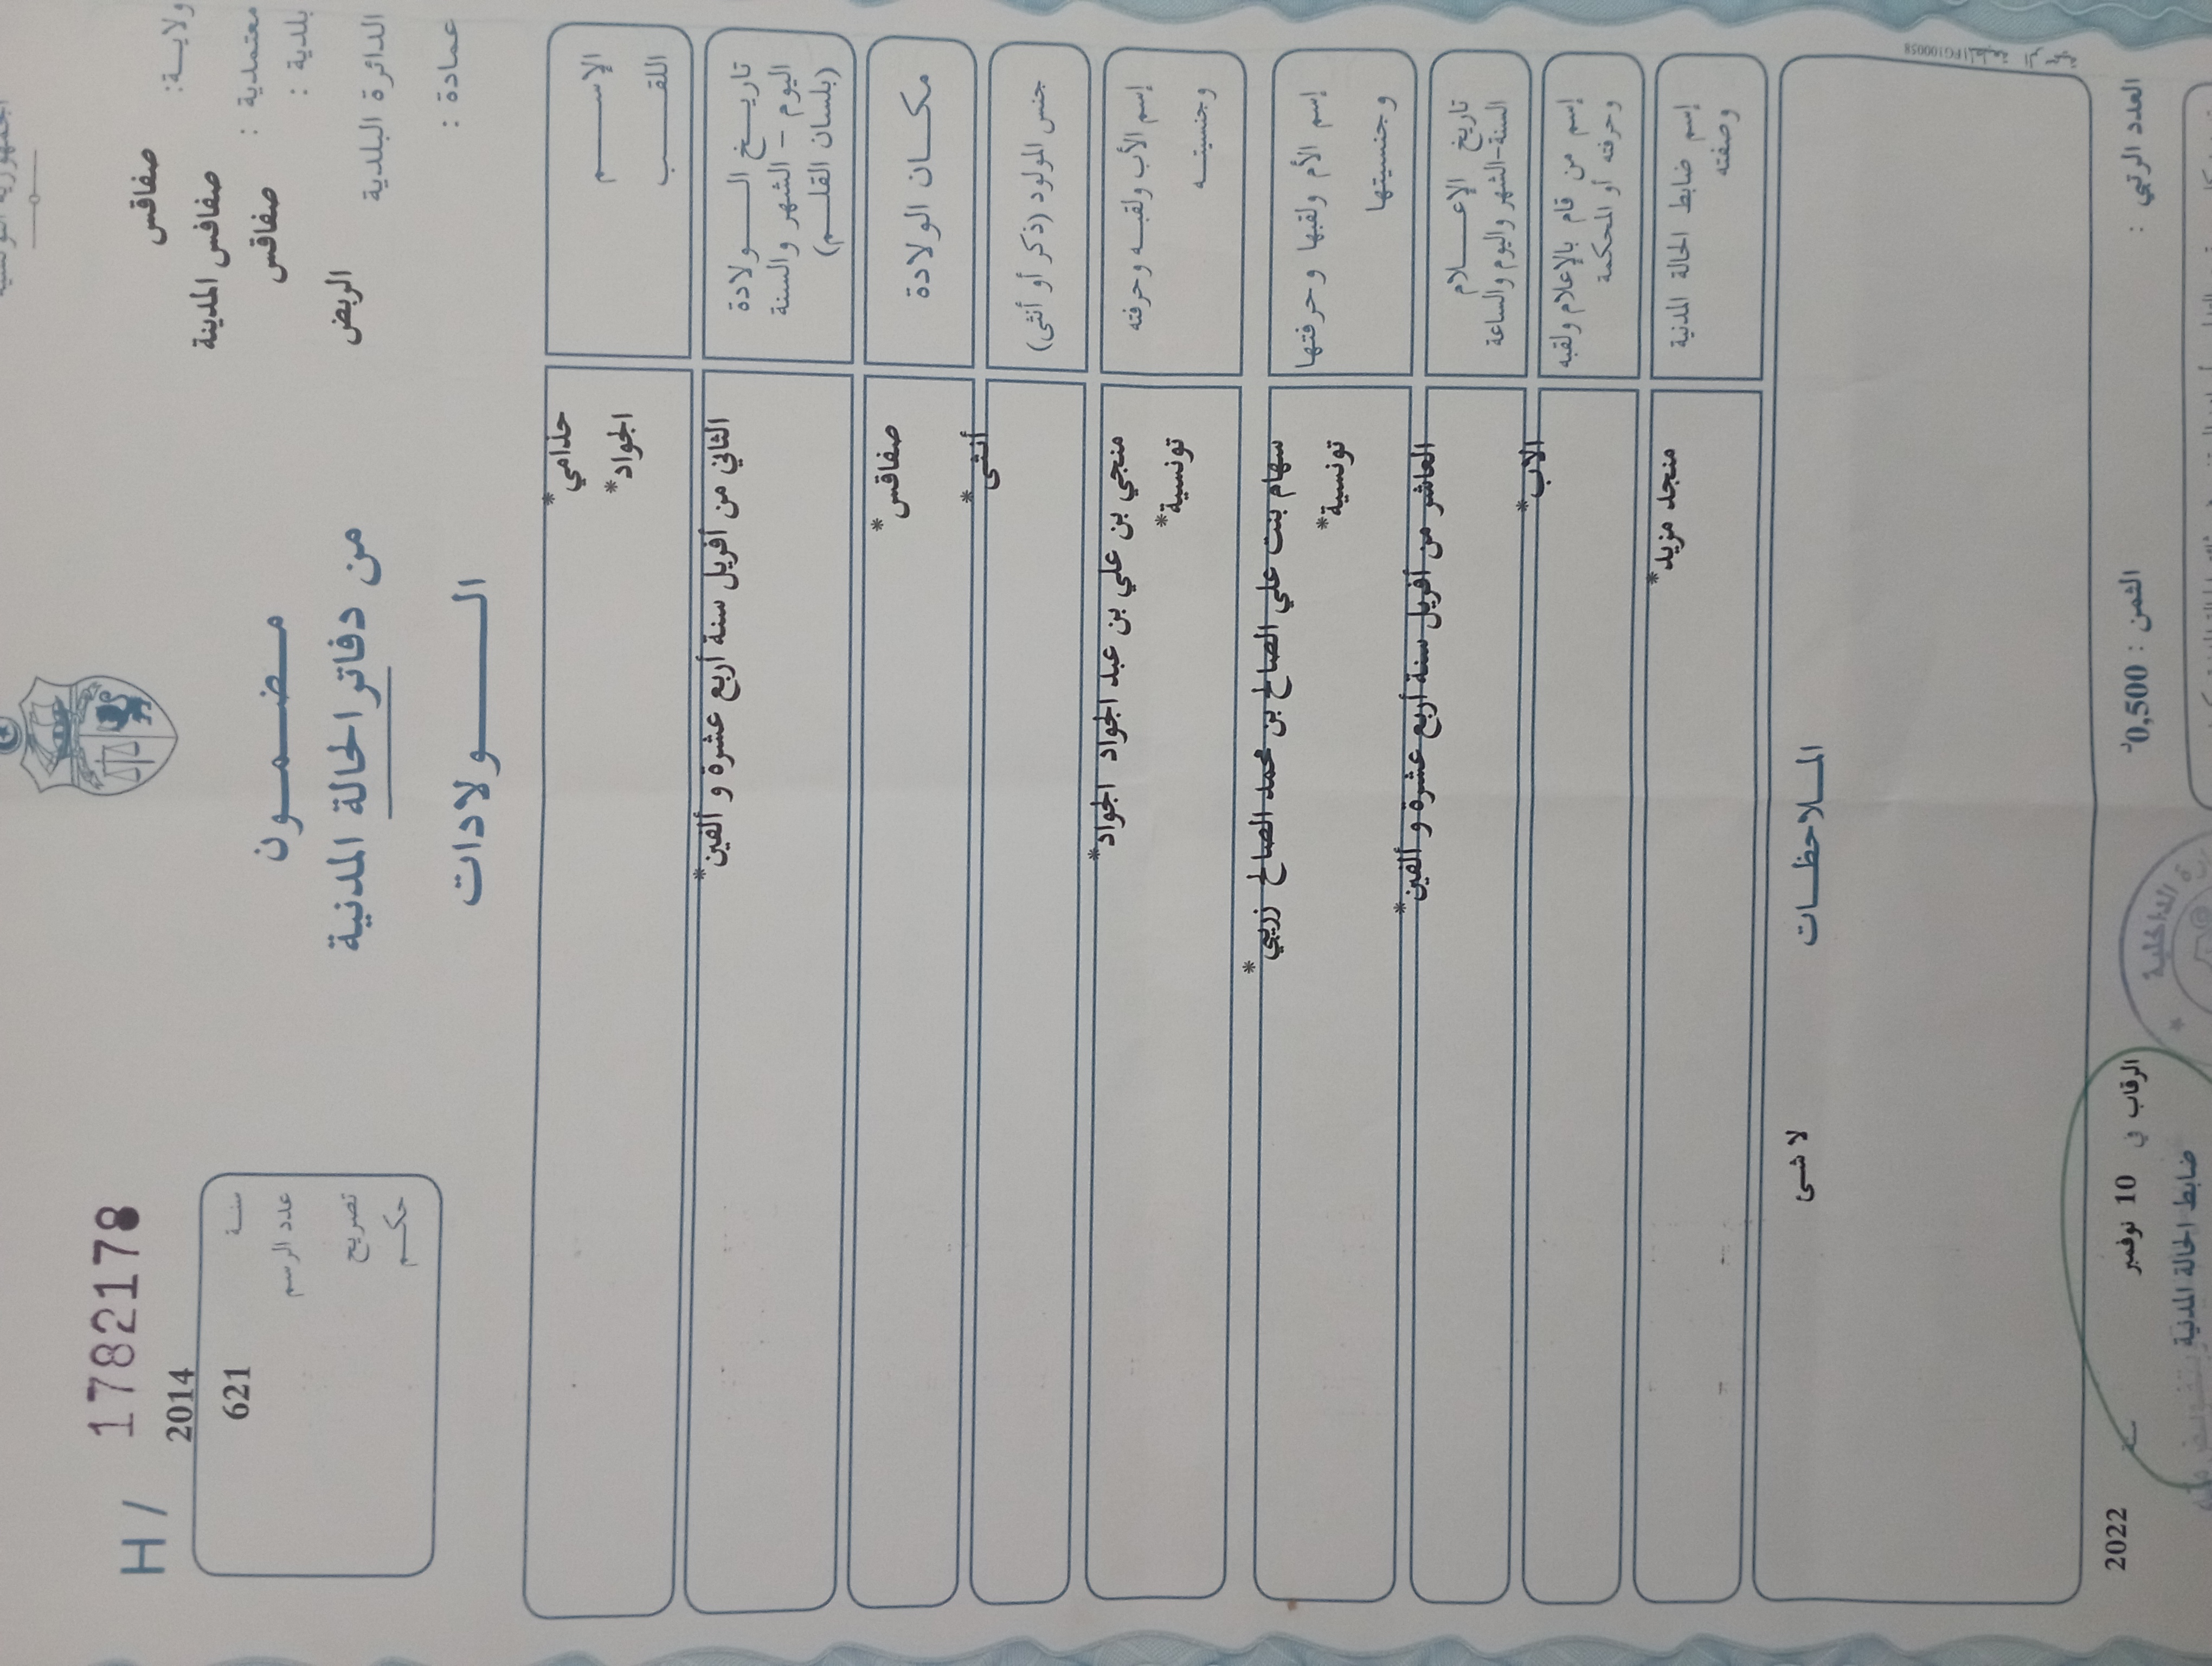 الجمهورية التونسية
ولايــة: صفاقس
معتمدية : صفاقس المدينة
بلدية : صفاقس
الدائرة البلدية الربض
عمادة :
مـضـمــون
من دفاتر الحالة المدنية
الــــولادات
H / 1782178
2014
سنـة
621
عدد الرسم
تصريح
حكـم
الإســـم
حذامي*
اللقــب
الجواد*
تاريــخ الــولادة
اليوم - الشهر والسنة
(بلسان القلــم)
الثاني من أفريل سنة أربع عشرة و ألفين*
مكــان الولادة
صفاقس*
جنس المولود (ذكر أو أنثى)
أنثى*
إسم الأب ولقبـه وحرفته
وجنسيتــه
منجي بن علي بن عبد الجواد الجواد*
تونسية*
إسم الأم ولقبها وحرفتها
وجنسيتها
سهام بنت علي الصالح بن محمد الصالح زريبي*
تونسية*
تاريخ الإعــــلام
السنة-الشهر واليوم والساعة
العاشر من أفريل سنة أربع عشرة و ألفين*
إسم من قام بالإعلام ولقبه
وحرفته أو المحكمة
الاب*
إسم ضابط الحالة المدنية
وصفته
منجد مزيد*
المــلاحظــات
لا شى
العدد الرتبي :
الثمن : 0,500د
الرقاب في 10 نوفمبر سنة 2022
ضابط الحالة المدنية
الداخلية